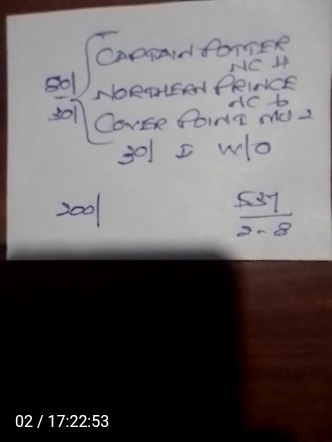 CAPTAIN POTTER
NC 4
80/
30/
NORTHERN PRINCE
NC 6
COVER POINT NC 2
30/ D W/O
200/
537
2-8
02 / 17:22:53